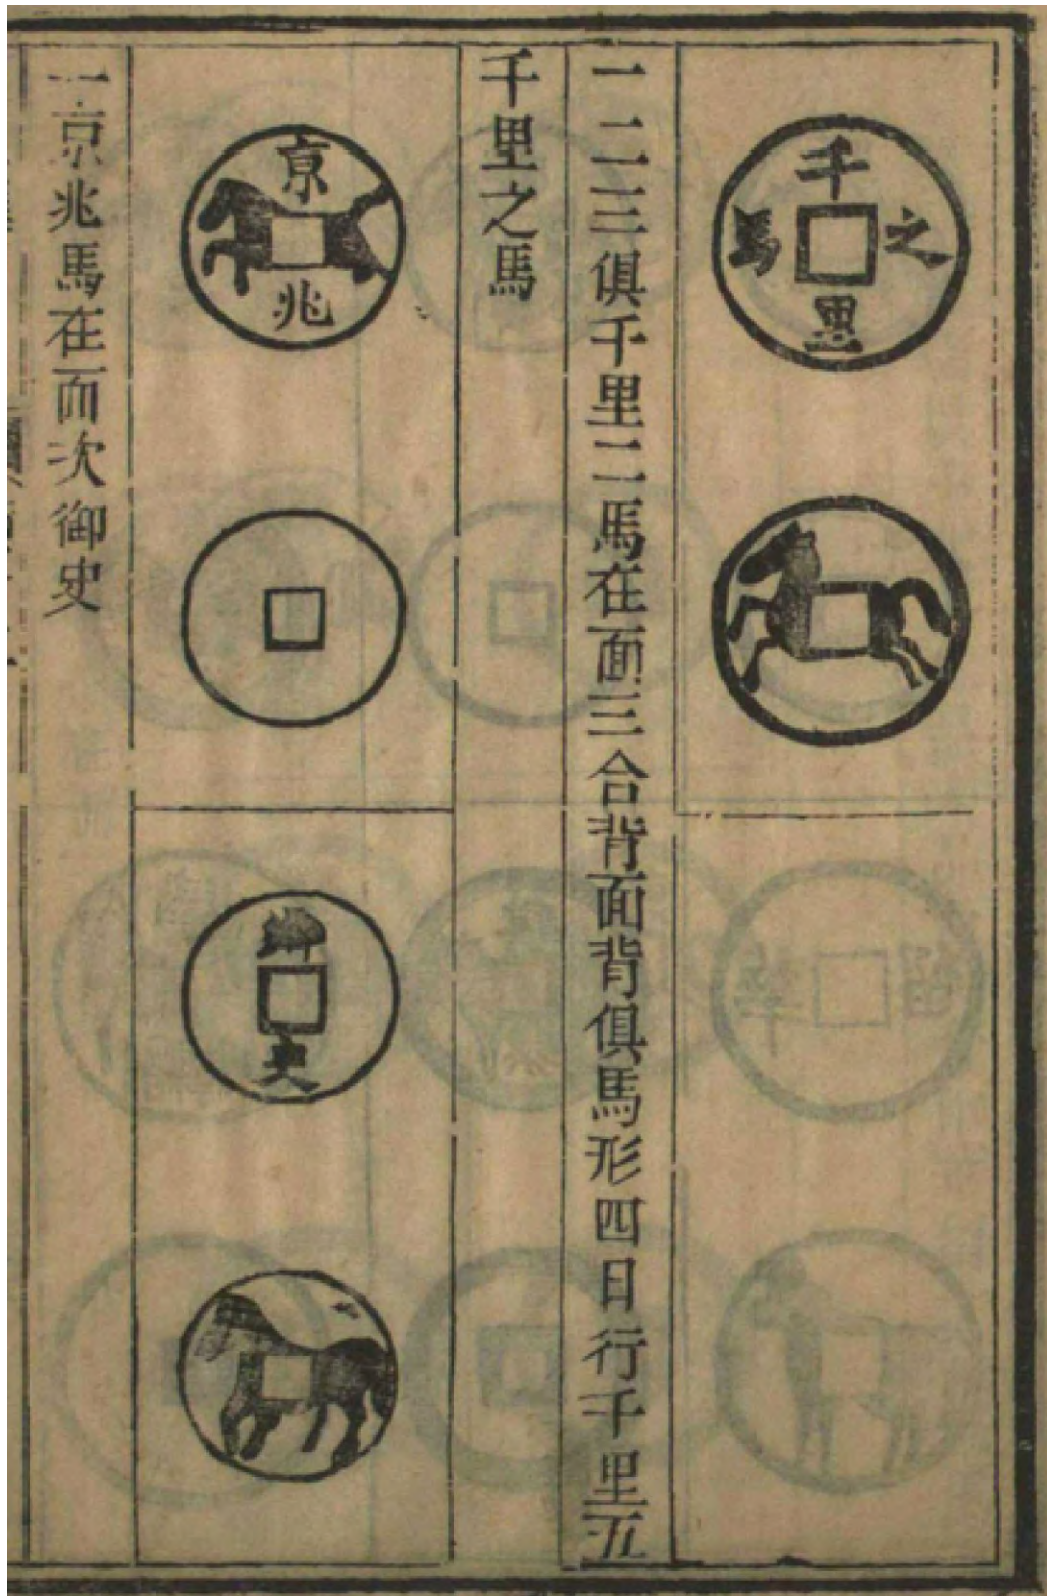 千里之馬
一二三俱千里二馬在面三合背面背俱馬形四日行千里五
千里之馬
京兆
御史
一京兆馬在面次御史